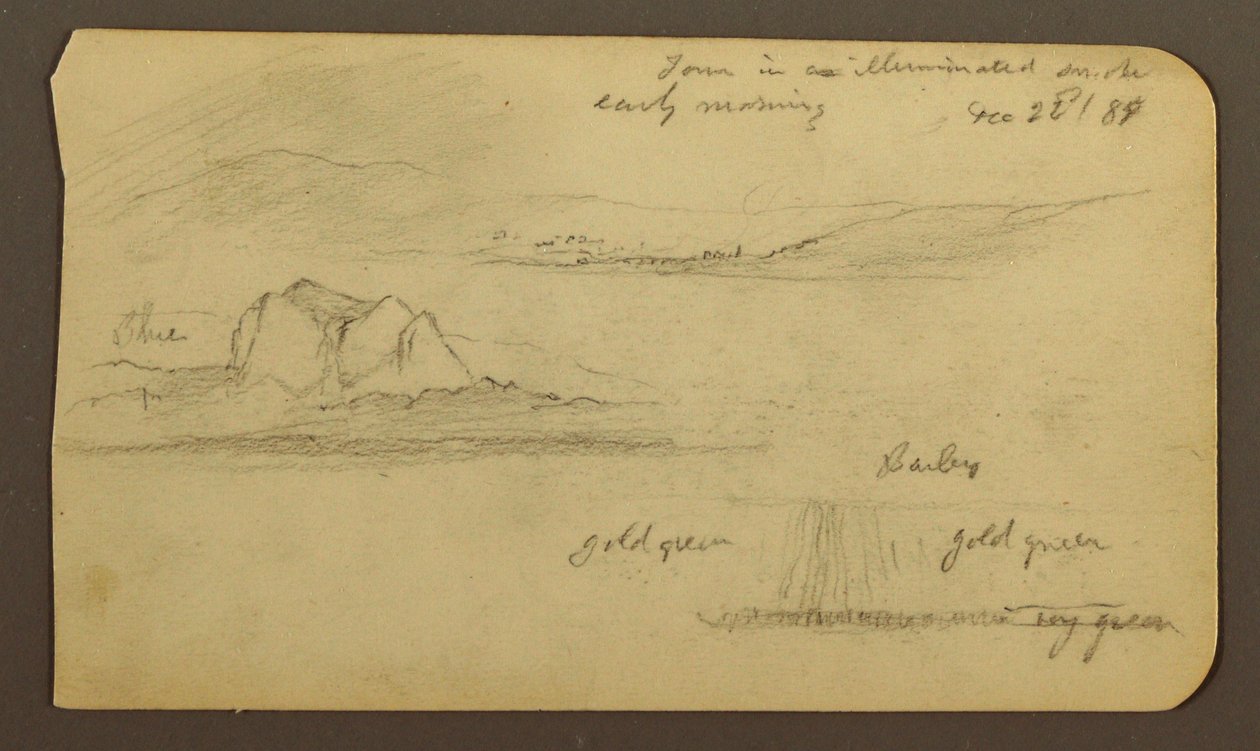 Town in a illuminated smoke
early morning Dec 22d / 84
Blue
Barley
gold green gold green
very green